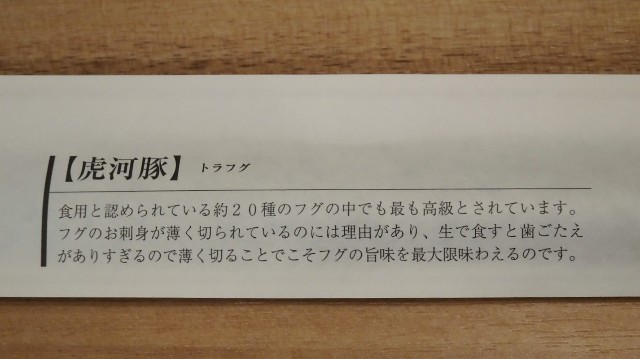 【虎河豚】 トラフグ
食用と認められている約２０種のフグの中でも最も高級とされています。
フグのお刺身が薄く切られているのには理由があり、生で食すと歯ごたえ
がありすぎるので薄く切ることでこそフグの旨味を最大限味わえるのです。